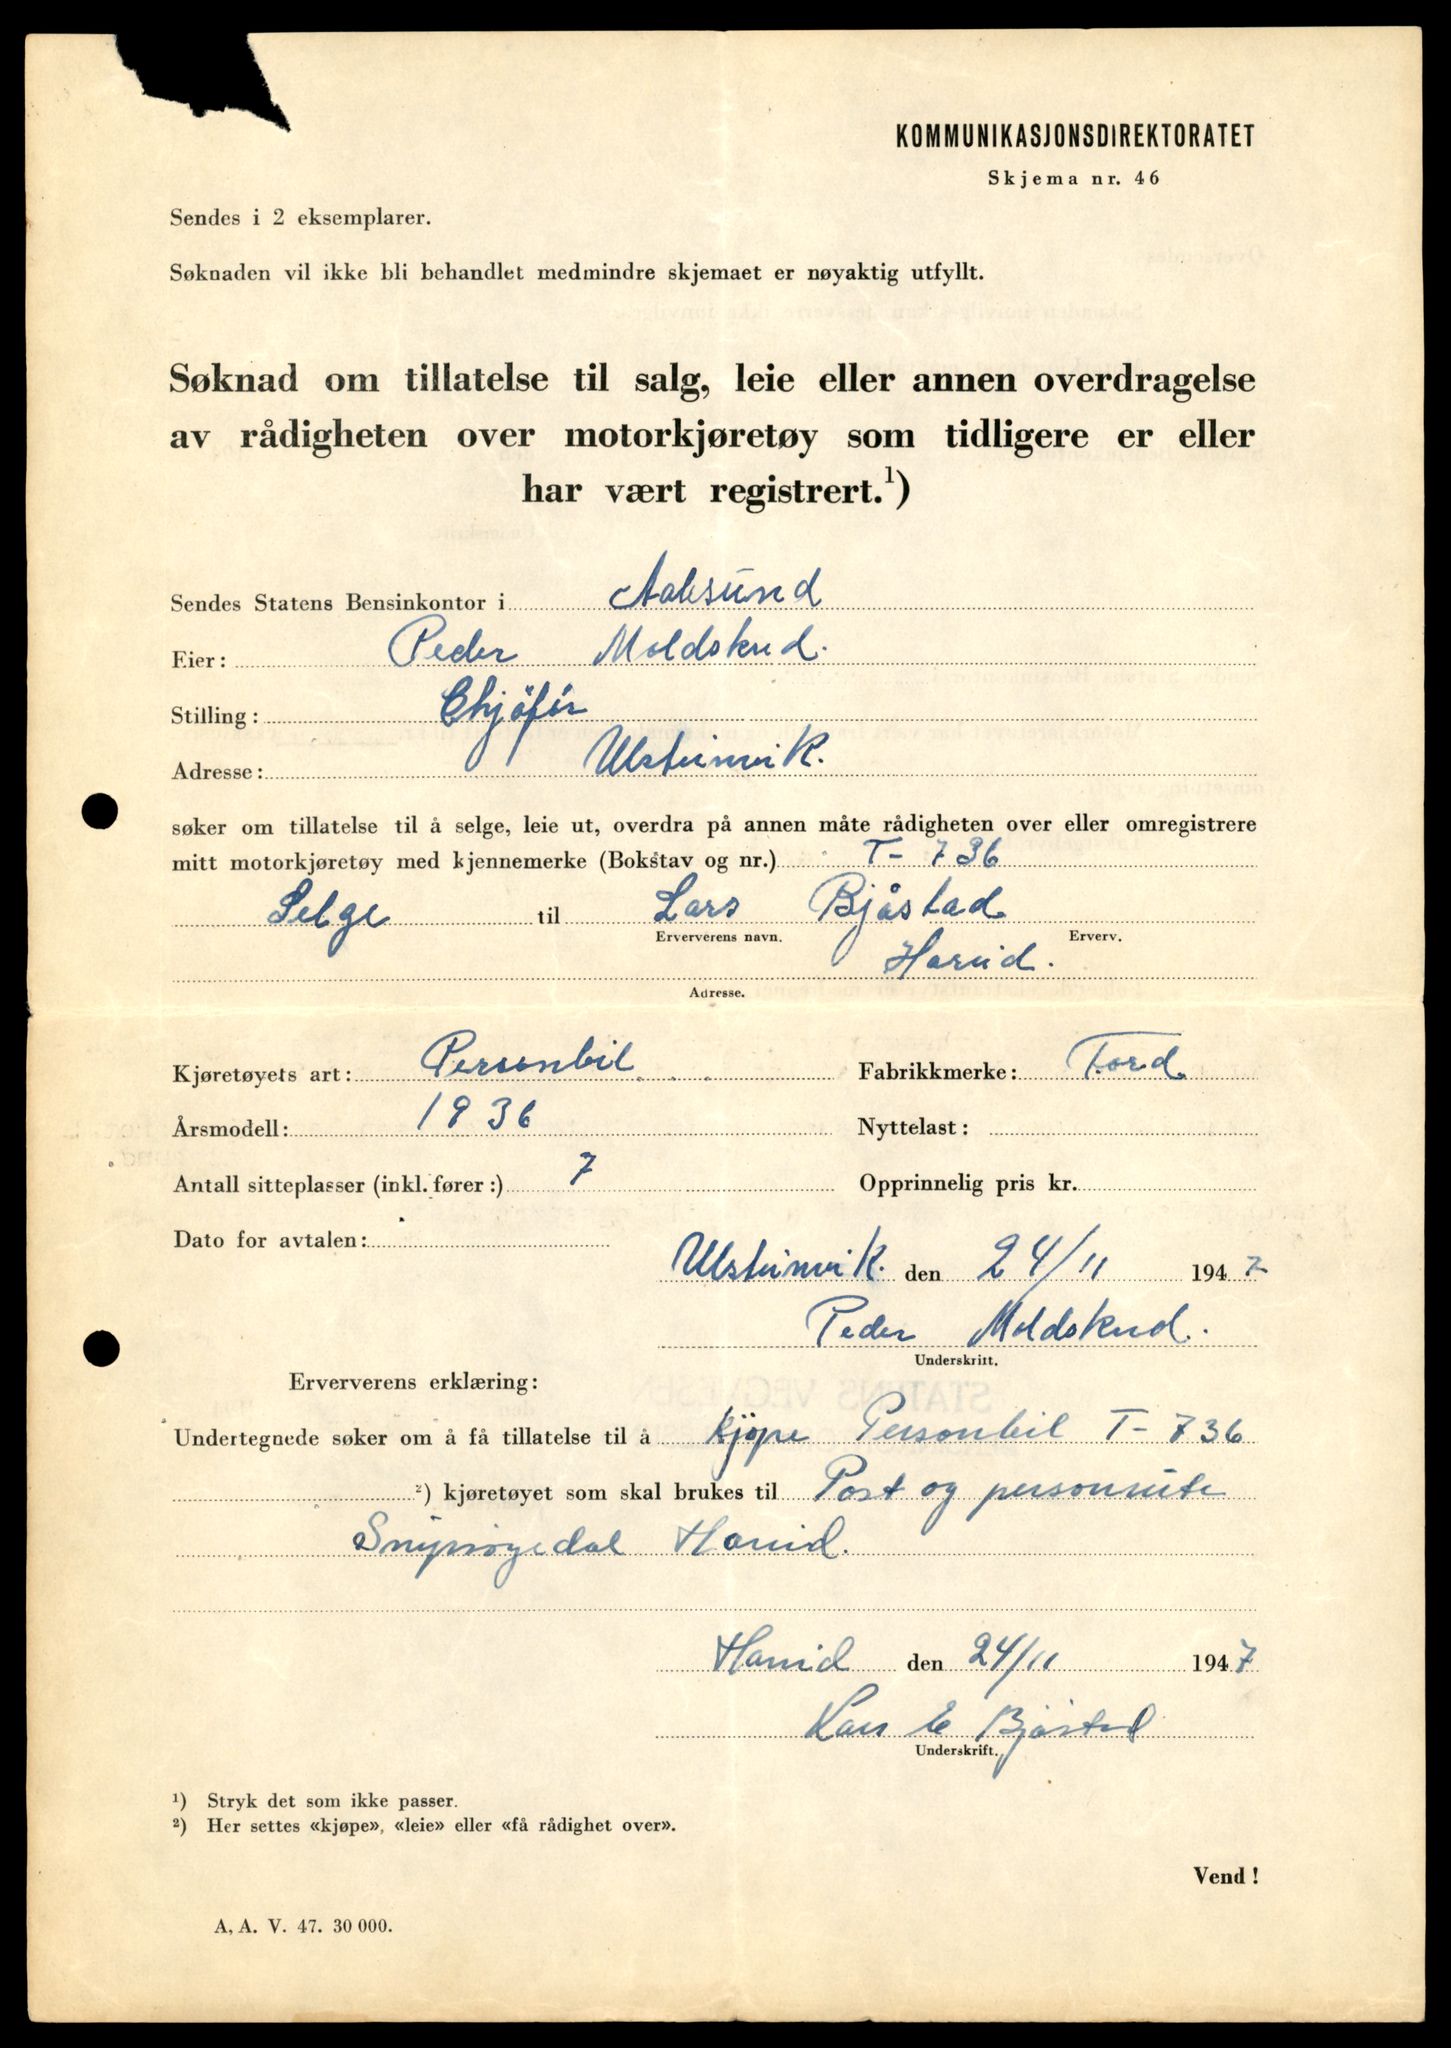 KOMMUNIKASJONSDIREKTORATET
Skjema nr. 46
Sendes i 2 eksemplarer.
Søknaden vil ikke bli behandlet medmindre skjemaet er nøyaktig utfyllt.
Søknad om tillatelse til salg, leie eller annen overdragelse
av rådigheten over motorkjøretøy som tidligere er eller
har vært registrert.¹)
Sendes Statens Bensinkontor i Aalesund
Eier: Peder Moldskred.
Stilling: Chjøfør
Adresse: Ulsteinvik.
søker om tillatelse til å selge, leie ut, overdra på annen måte rådigheten over eller omregistrere
mitt motorkjøretøy med kjennemerke (Bokstav og nr.) T-736
Selge til Lars Bjåstad
Erververens navn. Erverv.
Hareid.
Adresse.
Kjøretøyets art: Personbil Fabrikkmerke: Ford
Årsmodell: 1936 Nyttelast:
Antall sitteplasser (inkl. fører:) 7 Opprinnelig pris kr.
Dato for avtalen:
Ulsteinvik. den 24/11 1947
Peder Moldskred.
Underskritt.
Erververens erklæring:
Undertegnede søker om å få tillatelse til å kjøpe Personbil T-736
²) kjøretøyet som skal brukes til Post og personrute
Hareid.
Hareid den 24/11 1947
Lars E Bjåstad
Underskrift.
¹) Stryk det som ikke passer.
²) Her settes «kjøpe», «leie» eller «få rådighet over».
Vend!
A. A. V. 47. 30 000.